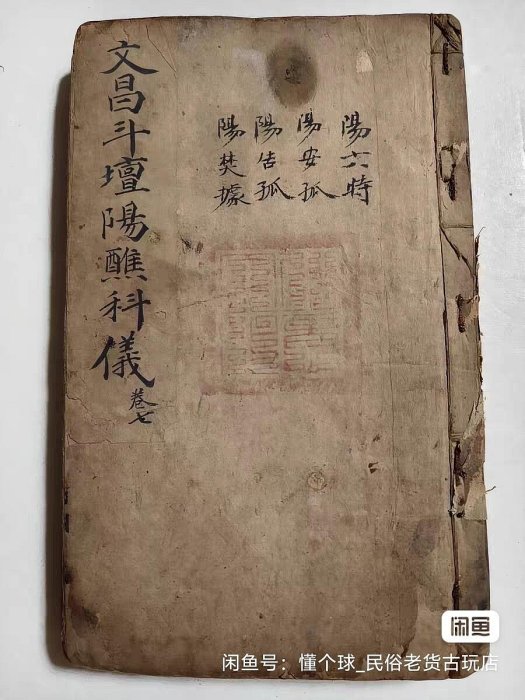 陽六時
陽安孤
陽告孤
陽焚據
文昌斗壇陽醮科儀
卷七
闲鱼
闲鱼号：懂个球_民俗老货古玩店